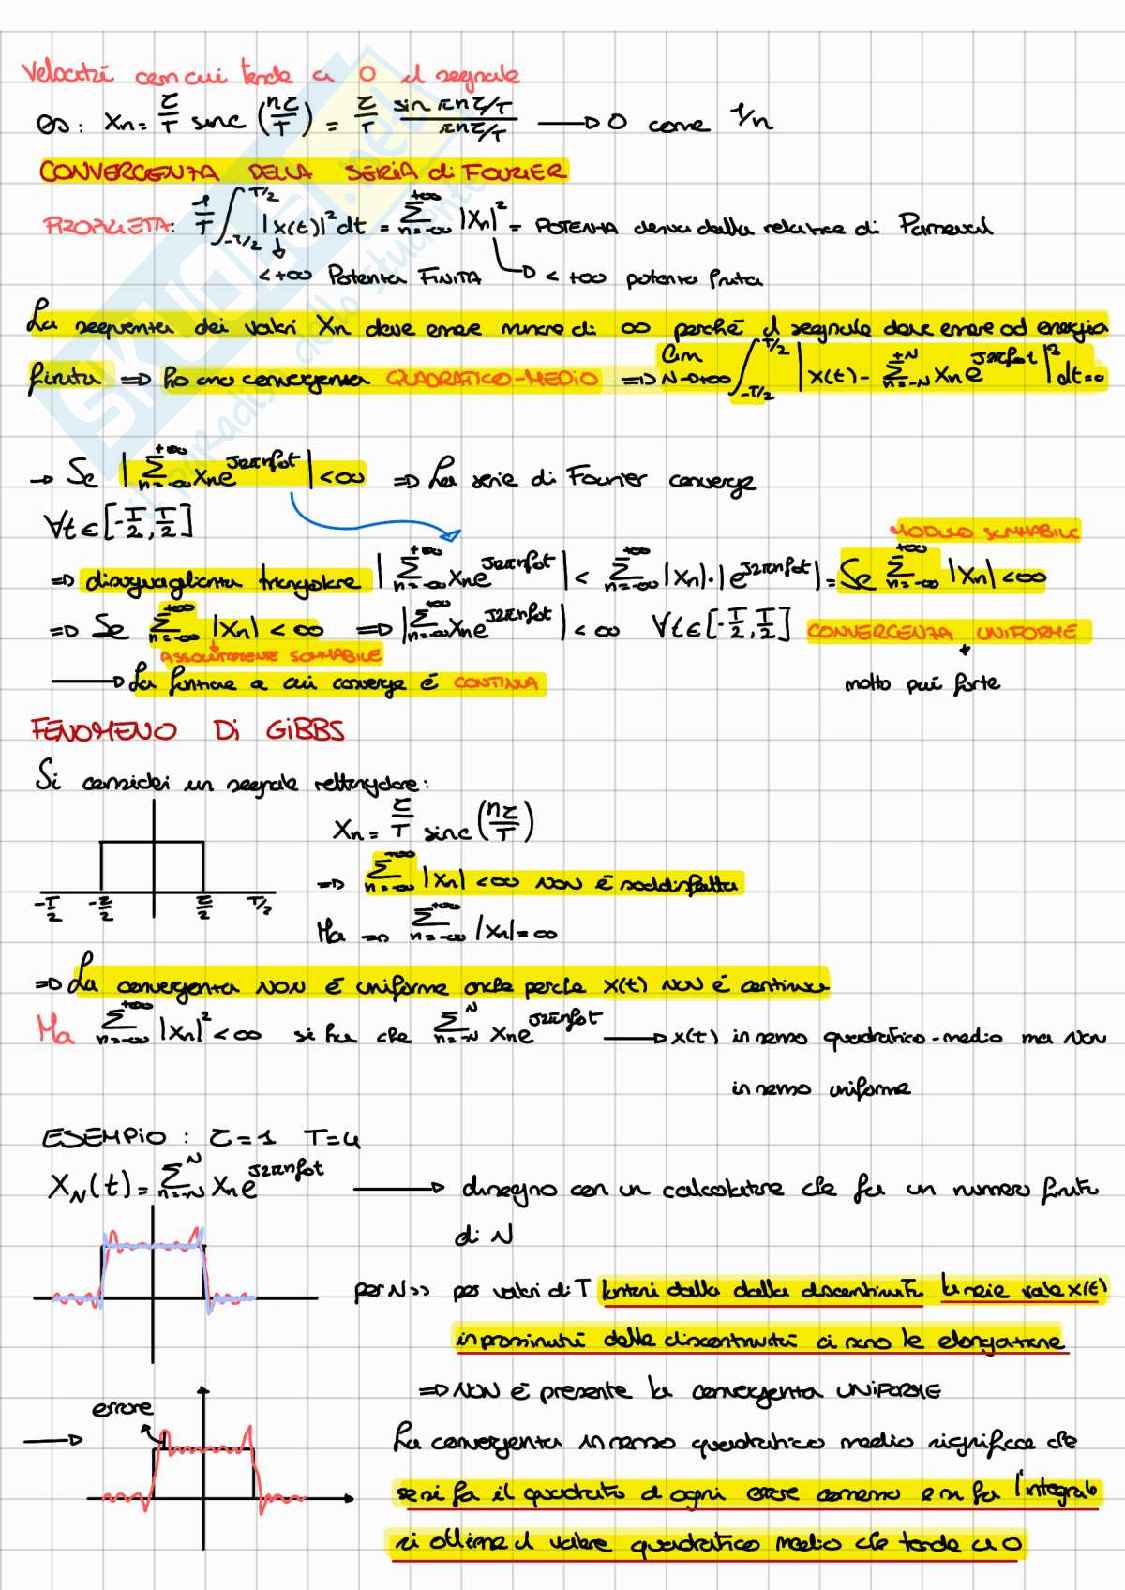 Velocità con cui tende a 0 il segnale
es: Xn = τ/T sinc (nτ/T) = τ/T sin πnτ/T / πnτ/T → 0 come 1/n
CONVERGENZA DELLA SERIA di FOURIER
PROPRIETA: 1/T ∫_{-T/2}^{T/2} |x(t)|² dt = Σ_{n=-∞}^{+∞} |Xn|² = POTENZA deriva dalla relazione di Parseval
< +∞ Potenza FINITA → < +∞ potenza finita
La sequenza dei valori Xn deve essere minore di ∞ perché il segnale deve essere ad energia
finita ⇒ ho una convergenza QUADRATICO-MEDIO ⇒ lim_{N→+∞} ∫_{-T/2}^{T/2} |x(t) - Σ_{n=-N}^{+N} Xn e^{J2πnfot}|² dt=0
→ Se |Σ_{n=-∞}^{+∞} Xn e^{J2πnfot}| < ∞ ⇒ La serie di Fourier converge
∀t ∈ [-T/2, T/2]
MODULO SOMMABILE
⇒ disuguaglianza triangolare |Σ_{n=-∞}^{+∞} Xn e^{J2πnfot}| < Σ_{n=-∞}^{+∞} |Xn| · |e^{J2πnfot}| = Se Σ_{n=-∞}^{+∞} |Xn| < ∞
⇒ Se Σ_{n=-∞}^{+∞} |Xn| < ∞ ⇒ |Σ_{n=-∞}^{+∞} Xn e^{J2πnfot}| < ∞ ∀t ∈ [-T/2, T/2] CONVERGENZA UNIFORME
ASSOLUTAMENTE SOMMABILE
→ La funzione a cui converge é CONTINUA
molto più forte
FENOMENO Di GiBBS
Si consideri un segnale rettangolare:
Xn = τ/T sinc (nτ/T)
-T/2 -τ/2 τ/2 T/2
⇒ Σ_{n=-∞}^{+∞} |Xn| < ∞ NON é soddisfatta
Ma ⇒ Σ_{n=-∞}^{+∞} |Xn| = ∞
⇒ La convergenza NON é uniforme anche perche x(t) NON é continua
Ma Σ_{n=-∞}^{+∞} |Xn|² < ∞ si ha che Σ_{n=-N}^{N} Xn e^{J2πnfot} → x(t) in senso quadratico-medio ma NON
in senso uniforme
ESEMPiO : τ = 1 T = 4
X_N(t) = Σ_{n=-N}^{N} Xn e^{J2πnfot} → disegno con un calcolatore che fa un numero finito
di N
per N>> per valori di T lontani dalla dalla discontinuità la serie vale x(t)
in prossimità delle discontinuità ci sono le elongazione
⇒ NON é presente la convergenza UNIFORME
errore
→ La convergenza in senso quadratico medio significa che
se si fa il quadrato di ogni errore commesso e si fa l'integrale
si ottiene il valore quadratico medio che tende a 0
SKUOLA.net
il paradiso dello studente